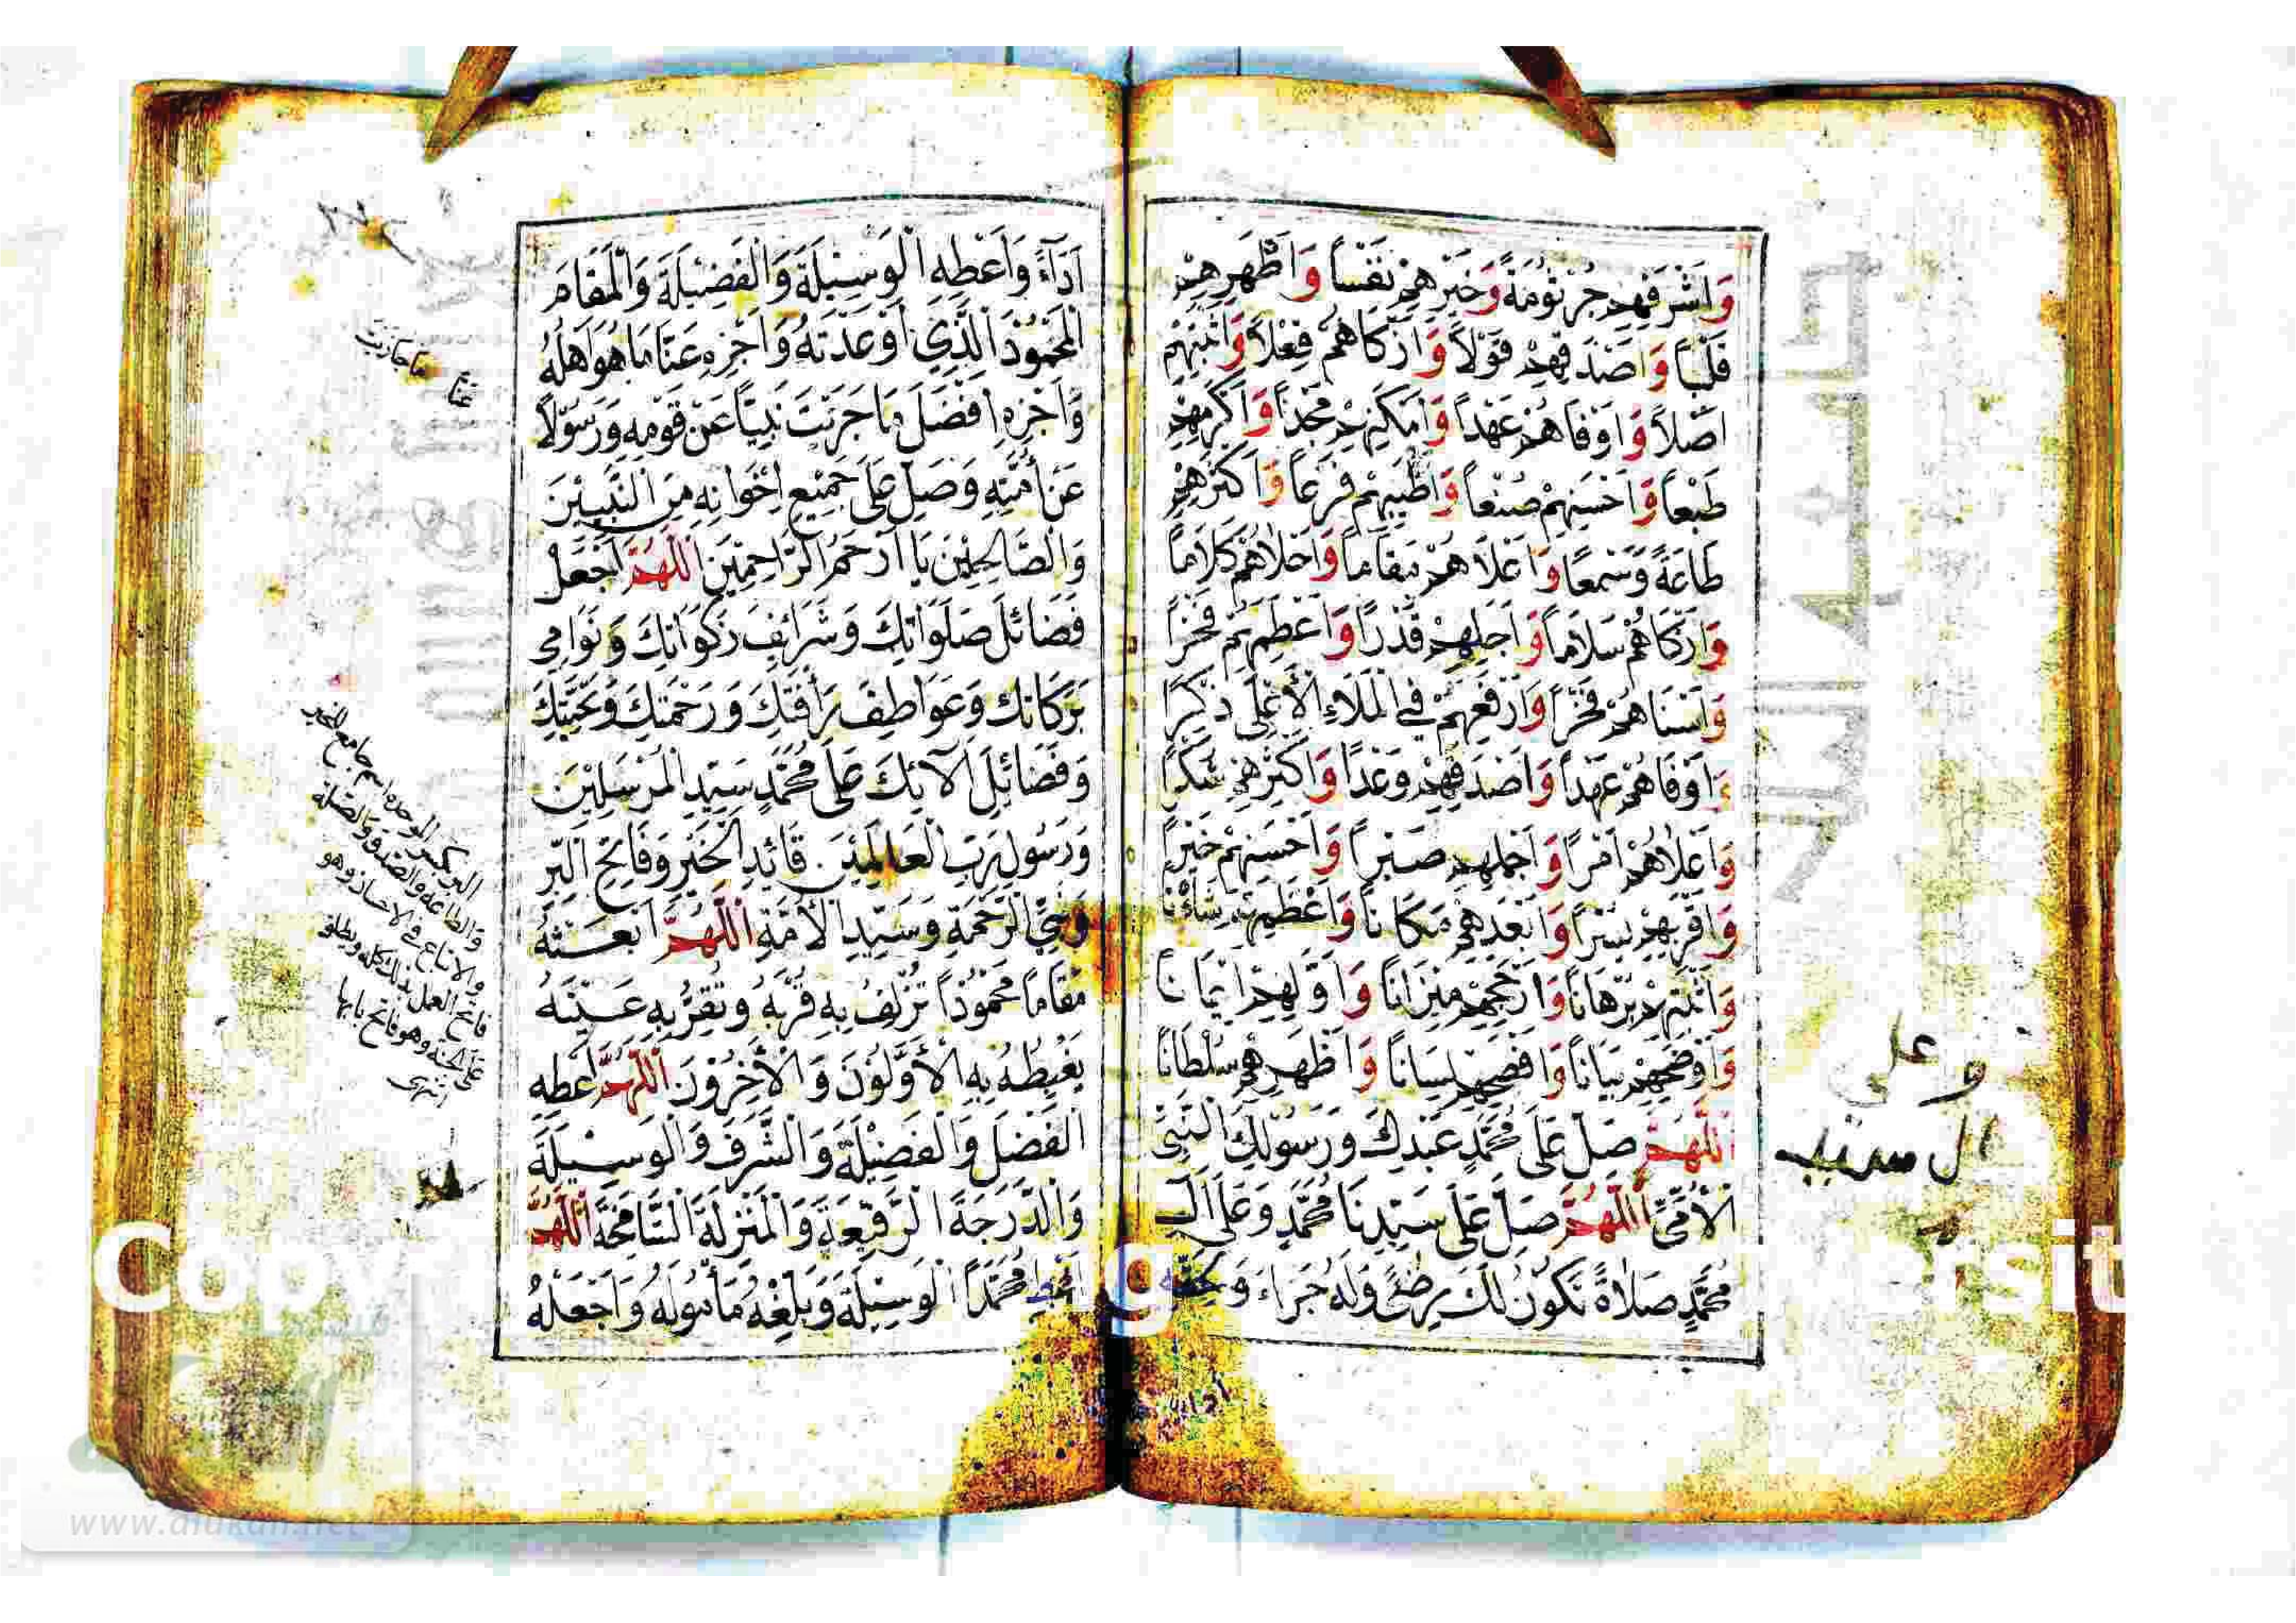 وَاَشْرَفِهِمْ جُرْثُومَةً وَخَيْرِهِمْ نَفْساً وَاَطْهَرِهِمْ
قَلْباً وَاَصْدَقِهِمْ قَوْلاً وَاَزْكَاهُمْ فِعْلاً وَاَثْبَتِهِمْ
اَصْلاً وَاَوْفَاهُمْ عَهْداً وَاَمْكَنِهِمْ مَجْداً وَاَكْرَمِهِمْ
طَبْعاً وَاَحْسَنِهِمْ صُنْعاً وَاَطْيَبِهِمْ فَرْعاً وَاَكْثَرِهِمْ
طَاعَةً وَسَمْعاً وَاَعْلَاهُمْ مَقَاماً وَاَحْلَاهُمْ كَلَاماً
وَاَزْكَاهُمْ سَلَاماً وَاَجَلِّهِمْ قَدْراً وَاَعْظَمِهِمْ فَخْراً
وَاَسْنَاهُمْ فَخْراً وَاَرْفَعِهِمْ فِي الْمَلَاءِ الْاَعْلَى ذِكْراً
وَاَوْفَاهُمْ عَهْداً وَاَصْدَقِهِمْ وَعْداً وَاَكْثَرِهِمْ شُكْراً
وَاَعْلَاهُمْ اَمْراً وَاَجْمَلِهِمْ صَبْراً وَاَحْسَنِهِمْ خَيْراً
وَاَقْرَبِهِمْ يُسْراً وَاَبْعَدِهِمْ مَكَاناً وَاَعْظَمِهِمْ شَاْناً
وَاَثْبَتِهِمْ بُرْهَاناً وَاَرْجَحِهِمْ مِيزَاناً وَاَوَّلِهِمْ اِيمَاناً
وَاَوْضَحِهِمْ بَيَاناً وَاَفْصَحِهِمْ لِسَاناً وَاَظْهَرِهِمْ سُلْطَاناً
اَللّٰهُمَّ صَلِّ عَلَى مُحَمَّدٍ عَبْدِكَ وَرَسُولِكَ النَّبِيِّ
الْاُمِّيِّ اَللّٰهُمَّ صَلِّ عَلَى سَيِّدِنَا مُحَمَّدٍ وَعَلَى اٰلِ
مُحَمَّدٍ صَلَاةً تَكُونُ لَكَ رِضًى وَلَهُ جَزَاءً وَلِحَقِّهِ
وعلى
ال سيدنا
اَدَاءً وَاَعْطِهِ الْوَسِيلَةَ وَالْفَضِيلَةَ وَالْمَقَامَ
الْمَحْمُودَ الَّذِي اَوْعَدْتَهُ وَاَجْزِهِ عَنَّا مَا هُوَ اَهْلُهُ
وَاَجْزِهِ اَفْضَلَ مَا جَزَيْتَ نَبِيّاً عَنْ قَوْمِهِ وَرَسُولاً
عَنْ اُمَّتِهِ وَصَلِّ عَلَى جَمِيعِ اِخْوَانِهِ مِنَ النَّبِيِّينَ
وَالصَّالِحِينَ يَا اَرْحَمَ الرَّاحِمِينَ اَللّٰهُمَّ اجْعَلْ
فَضَائِلَ صَلَوَاتِكَ وَشَرَائِفَ زَكَوَاتِكَ وَنَوَامِي
بَرَكَاتِكَ وَعَوَاطِفَ رَاْفَتِكَ وَرَحْمَتِكَ وَتَحِيَّتِكَ
وَفَضَائِلَ اٰلَائِكَ عَلَى مُحَمَّدٍ سَيِّدِ الْمُرْسَلِينَ
وَرَسُولِ رَبِّ الْعَالَمِينَ قَائِدِ الْخَيْرِ وَفَاتِحِ الْبِرِّ
وَنَبِيِّ الرَّحْمَةِ وَسَيِّدِ الْاُمَّةِ اَللّٰهُمَّ ابْعَثْهُ
مَقَاماً مَحْمُوداً تُزْلِفُ بِهِ قُرْبَهُ وَتُقِرُّ بِهِ عَيْنَهُ
يَغْبِطُهُ بِهِ الْاَوَّلُونَ وَالْاٰخِرُونَ اَللّٰهُمَّ اَعْطِهِ
الْفَضْلَ وَالْفَضِيلَةَ وَالشَّرَفَ وَالْوَسِيلَةَ
وَالدَّرَجَةَ الرَّفِيعَةَ وَالْمَنْزِلَةَ الشَّامِخَةَ اَللّٰهُمَّ
اَعْطِ مُحَمَّداً الْوَسِيلَةَ وَبَلِّغْهُ مَاْمُولَهُ وَاجْعَلْهُ
عنا ما جازيت
البر بكسر الموحدة اسم جامع للخير
والطاعة والصدق والصلة
والاتساع في الاحسان وهو
فاتح العمل بذلك كله ويطلق
على الجنة وهو فاتح بابها
انتهى
www.alukah.net